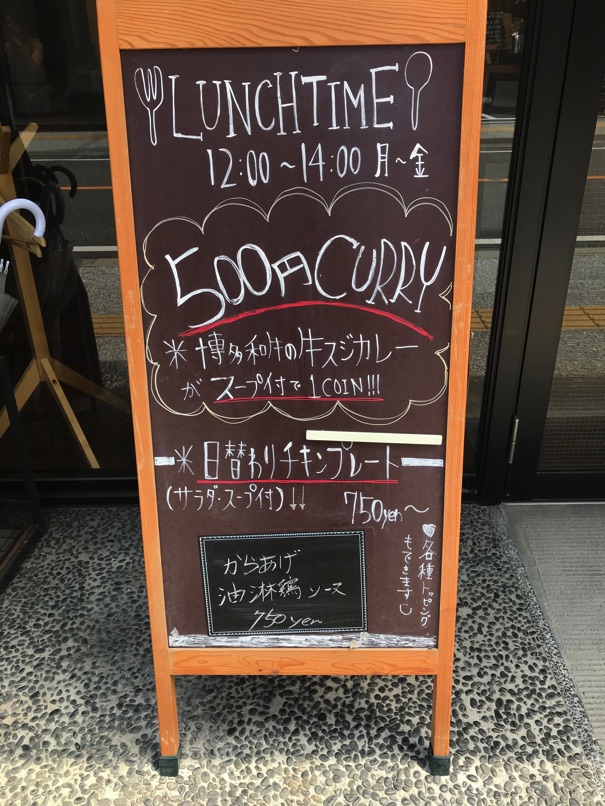 LUNCHTIME
12:00～14:00 月～金
500円CURRY
＊博多和牛の牛スジカレー
がスープ付で1COIN!!!
＊日替わりチキンプレート
(サラダ・スープ付)↓↓ 750yen～
からあげ
油淋鶏ソース
750yen
♥各種トッピング
もできます